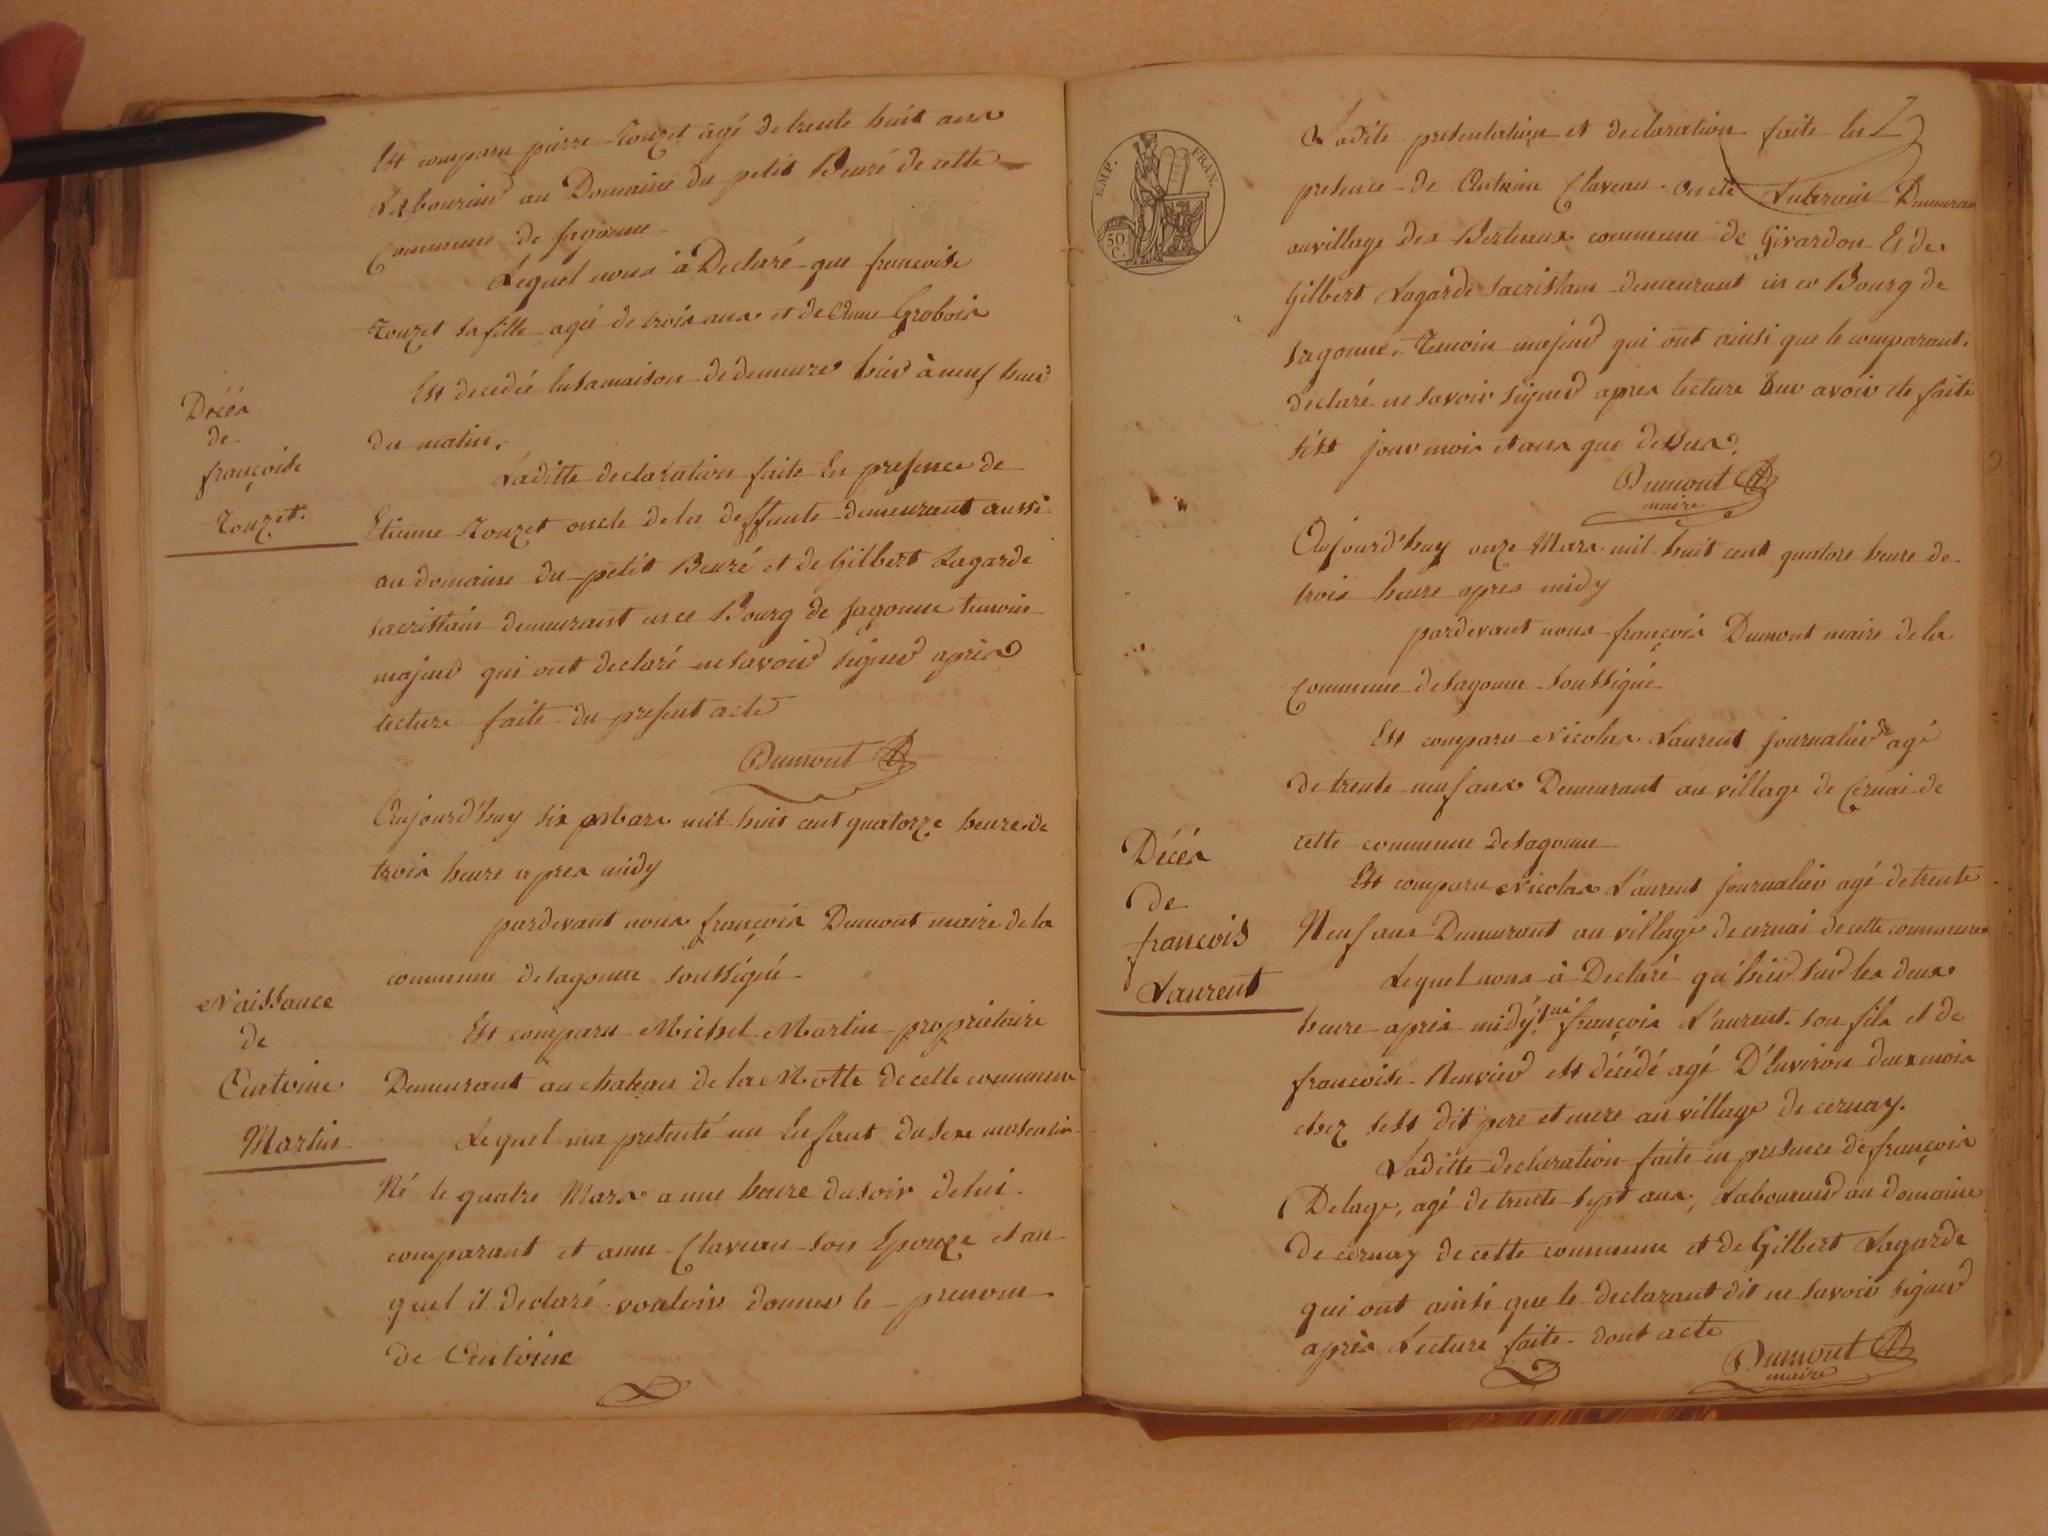 Est comparu pierre Touzet agé de trente huit ans
Laboureur au Domaine du petit Beuré de cette
Commune de sagonne
Lequel nous à Declaré que francoise
Touzet sa fille agée de trois ans et de Anne Grobois
Est decedée en sa maison de demeure hier à neuf heur
du matin.
Laditte declaration faite En presence de
Etienne Touzet oncle de la deffunte demeurant aussi
au domaine du petit Beuré et de Gilbert Lagarde
sacristain demeurant en ce Bourg de sagonne temoins
majeur qui ont declaré ne savoir signer après
lecture faite du present acte
Dumont
Décés
de
françoise
Touzet.
Aujourd'huy six Mars mil huit cent quatorze heure de
trois heure apres midy
pardevant nous françois Dumont maire de la
commune de sagonne soussigné
Est comparu Michel Martin propriétaire
Demeurant au chateau de la Motte de cette commune
Lequel ma presenté un Enfant du sexe masculin
Né le quatre Mars a une heure du soir de lui
comparant et anne Claveau son Epouze et au
quel il declaré vouloir donner le prenom
de Antoine
Naissance
de
Antoine
Martin
EMP. FRAN.
50.
C.
Ladite presentation et declaration faite En
presence de Antoine Claveau oncle Demeurant
au village des Berteaux commune de Givardon Et de
Gilbert Lagarde sacristain demeurant en ce Bourg de
sagonne. Temoin majeur qui ont ainsi que le comparant
declaré ne savoir signer apres lecture Leur avoir ete faite
sest jour mois et ans que dessus.
Dumont
maire
Aujourd'huy onze Mars mil huit cent quatore heure de
trois heure apres midy
pardevant nous françois Dumont maire de la
Commune de sagonne soussigné
Est comparu Nicolas Laurent journalier agé
de trente neuf ans Demeurant au village de Cernai de
cette commune de sagonne
Est comparu Nicolas Laurent journalier agé de trente
Neuf ans Demeurant au village de cernai de cette commune
Lequel nous à Declaré qu'hier sur les deux
heure après midy. que françois Laurent son fils et de
francoise est décédé agé D'Environ deux mois
chez sest dit pere et mere au village de cernay.
Laditte declaration faite en presence de françois
Delage, agé de trente sept ans, Laboureur au domaine
de cernay de cette commune et de Gilbert Lagarde
qui ont ainsi que le declarant dit ne savoir signer
après Lecture faite dont acte
Dumont
maire
Décés
de
françois
Laurent